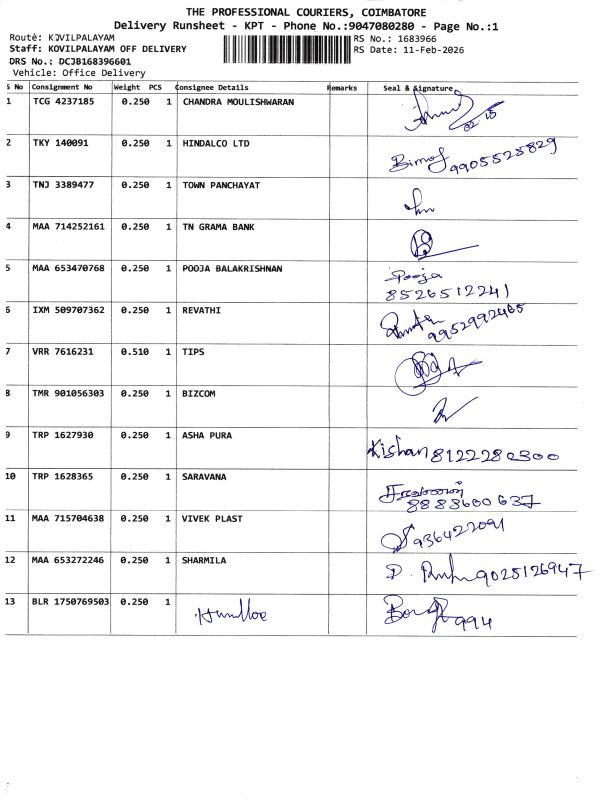 THE PROFESSIONAL COURIERS, COIMBATORE
Delivery Runsheet - KPT - Phone No.:9047080280 - Page No.:1
Route: KOVILPALAYAM
RS No.: 1683966
Staff: KOVILPALAYAM OFF DELIVERY
RS Date: 11-Feb-2026
DRS No.: DCJB168396601
Vehicle: Office Delivery
S No Consignment No Weight PCS Consignee Details Remarks Seal & Signature
1 TCG 4237185 0.250 1 CHANDRA MOULISHWARAN
2 TKY 140091 0.250 1 HINDALCO LTD 9905525829
3 TNJ 3389477 0.250 1 TOWN PANCHAYAT
4 MAA 714252161 0.250 1 TN GRAMA BANK
5 MAA 653470768 0.250 1 POOJA BALAKRISHNAN Pooja
8526512241
6 IXM 509707362 0.250 1 REVATHI 9952992465
7 VRR 7616231 0.510 1 TIPS
8 TMR 901056303 0.250 1 BIZCOM
9 TRP 1627930 0.250 1 ASHA PURA Kishan 8122280300
10 TRP 1628365 0.250 1 SARAVANA சரவணன்
8883600637
11 MAA 715704638 0.250 1 VIVEK PLAST 936422091
12 MAA 653272246 0.250 1 SHARMILA 9025126947
13 BLR 1750769503 0.250 1 994